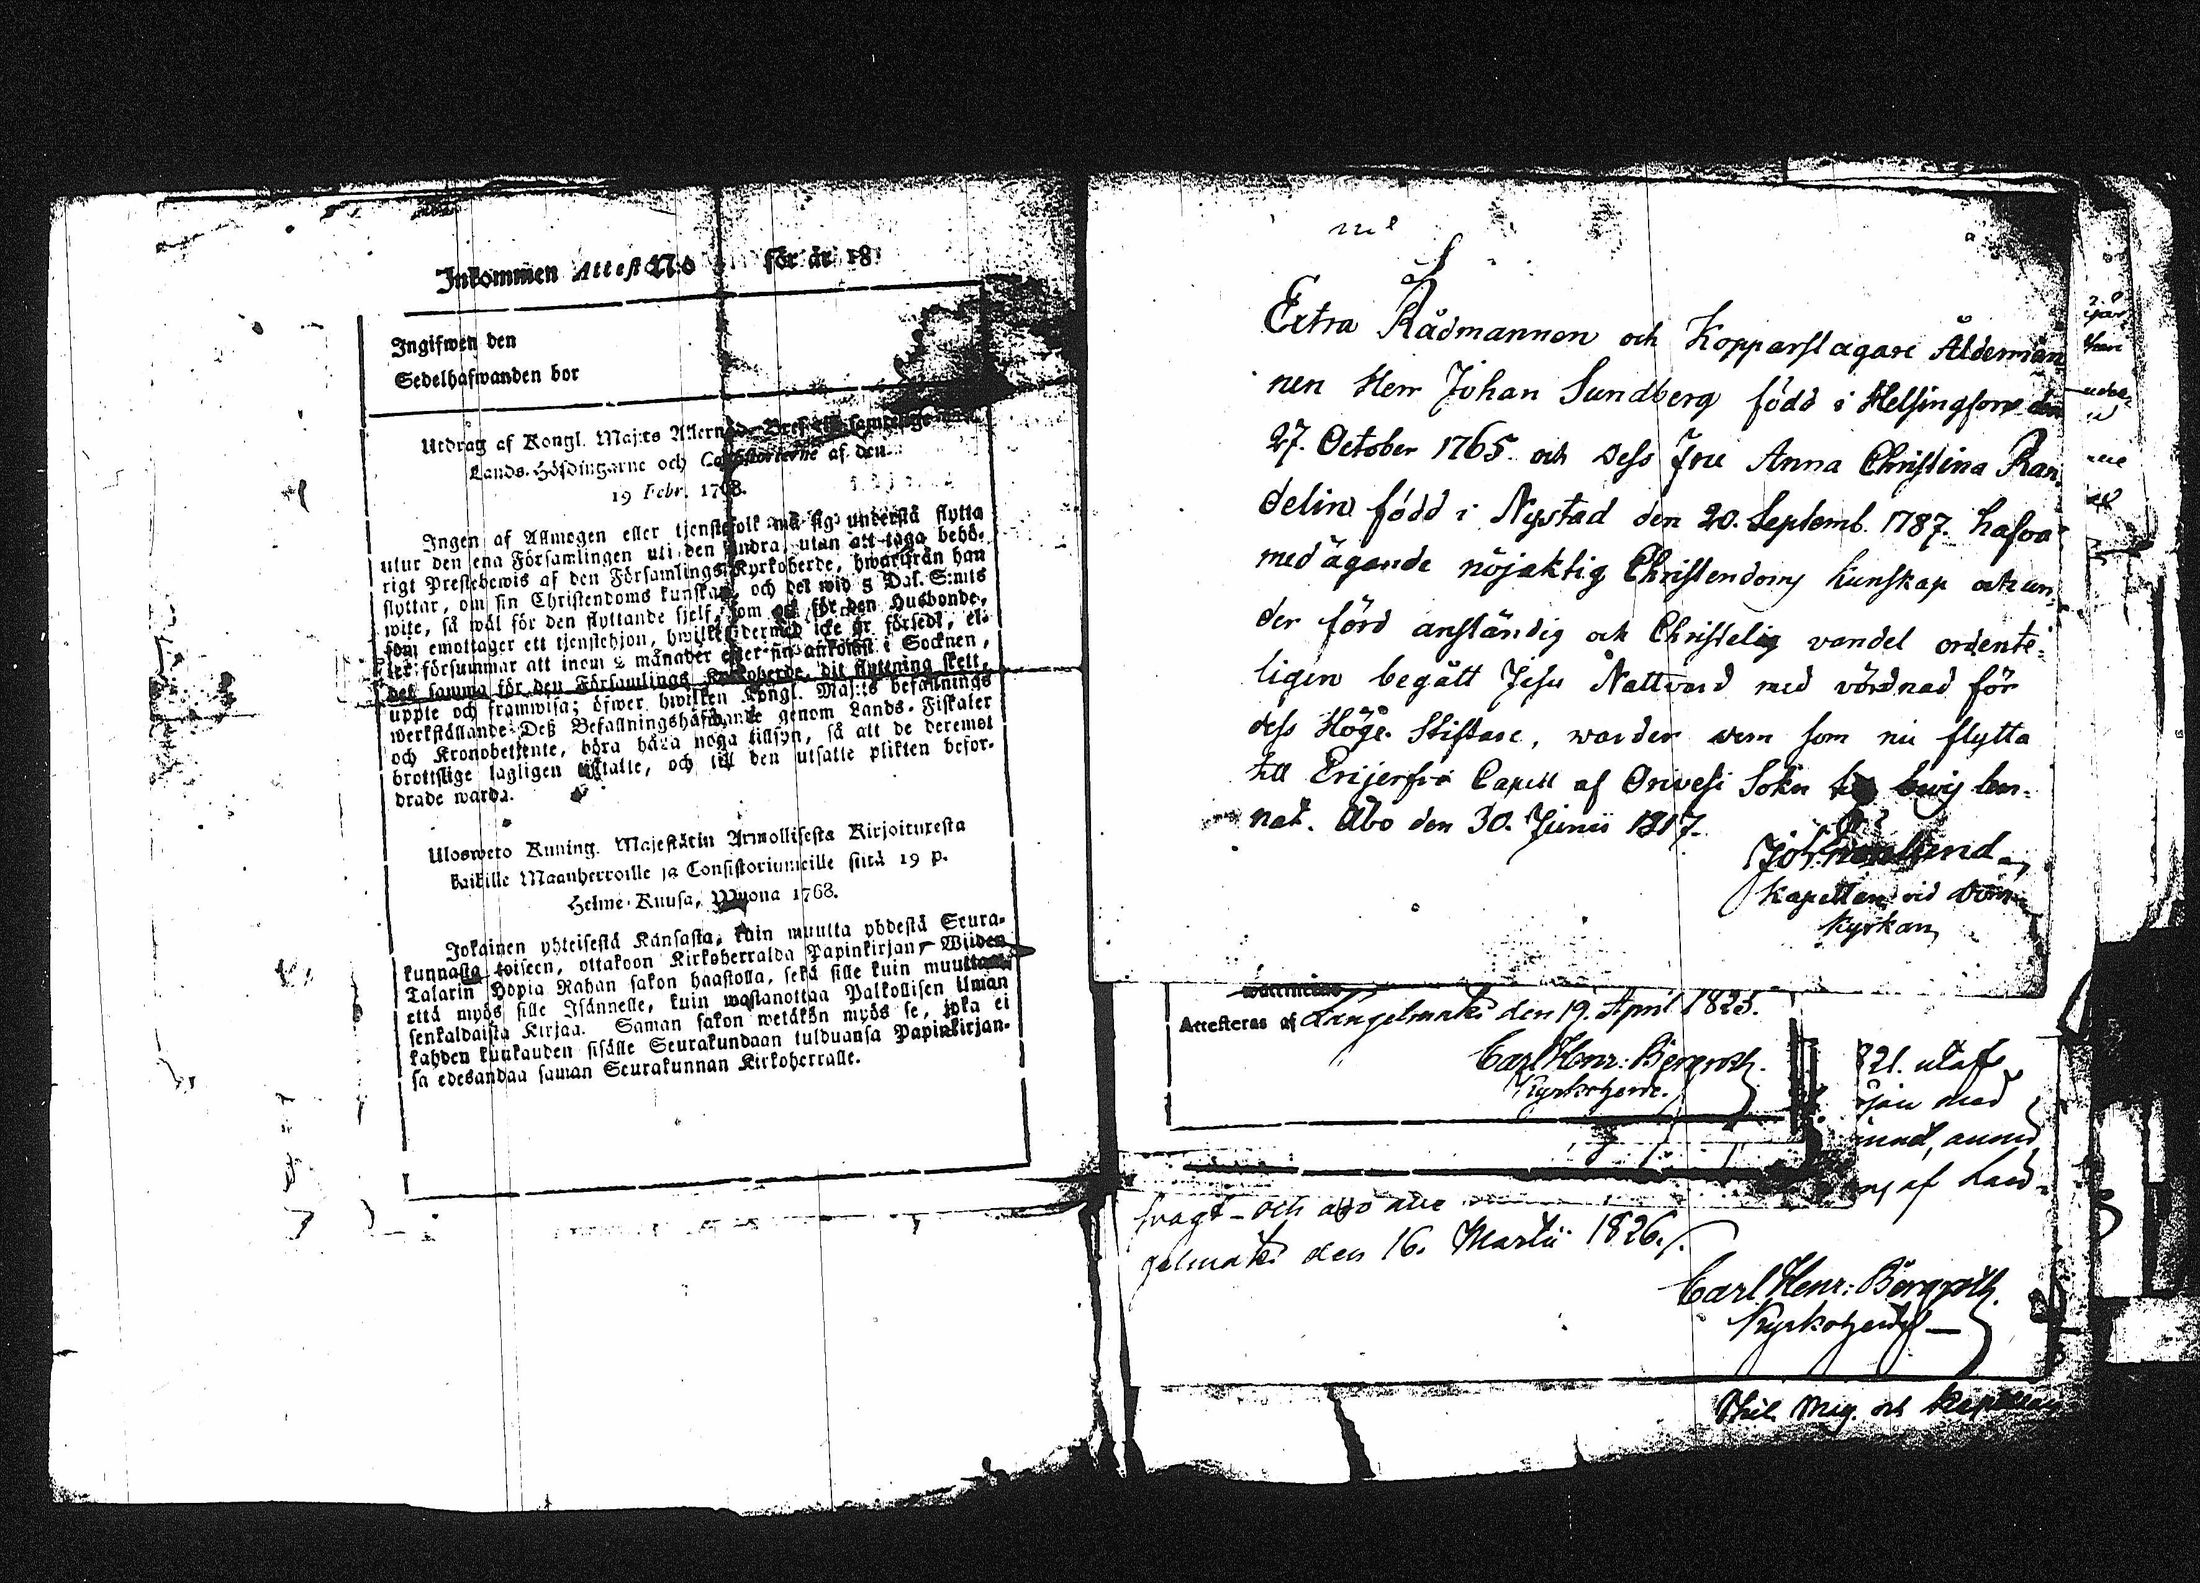 Inkommen Attest N:o för år 18
Ingifwen den
Sedelhafwanden bor
Utdrag af Kongl. Maj:ts Allernåd. Bref till samtelige
Lands-Höfdingarne och Consistorierne af den
19 Febr. 1768.
Ingen af Allmogen eller tjenstefolk må sig understå flytta
utur den ena Församlingen uti den andra, utan att taga behö-
rigt Prestebewis af den Församlings Kyrkoherde, hwarifrån han
flyttar, om sin Christendoms kunskap, och det wid 5 Dal. S:mts
wite, så wäl för den flyttande sjelf, som ock för den Husbonde,
som emottager ett tjenstehjon, hwilket dermed icke är försedt, el-
ler försummar att inom 2 månader efter sin ankomst i Socknen,
det samma för den Församlings Kyrkoherde, dit flyttning skett,
uppte och framwisa; öfwer hwilken Kongl. Maj:ts befallnings
werkställande Deß Befallningshafwande genom Lands-Fiskaler
och Kronobetjente, böra hålla noga tillsyn, så att de deremot
brottslige lagligen tilltalte, och till den utsatte plikten befor-
drade warda.
Uloswето Kuning. Majestätin Armollisesta Kirjoituxesta
kaikille Maanherroille ja Consistoriumeille siitä 19 p.
Helme-Kuusa, Wuona 1768.
Jokainen yhteisestä Kansasta, kuin muutta yhdestä Seura-
kunnasta toiseen, ottakoon Kirkoherralda Papinkirjan, Wiiden
Talarin Hopia Rahan sakon haastolla, sekä sille kuin muuttaa
että myös sille Isännelle, kuin wastanottaa Palkollisen ilman
senkaldaista Kirjaa. Saman sakon wetäkön myös se, joka ei
kahden kuukauden sisälle Seurakundaan tulduansa Papinkirjan-
sa edesandaa saman Seurakunnan Kirkoherralle.
Extra Rådmannen och Kopparslagare Ålderman
nen Herr Johan Sundberg född i Helsingfors den
27. October 1765 och dess Fru Anna Christina Ran
delin född i Nystad den 20. Septemb. 1787. hafva
med ägande nöjaktig Christendoms kunskap och un-
der förd anständig och Christelig vandel ordente-
ligen begått Jesu Nattvard med vördnad för
dess Höge Stiftare, warder dem som nu flytta
till Erijerfvi Capell af Orivesi Sokn bevis lem-
nat. Åbo den 30. Junii 1817.
Kapellan vid Dom
kyrkan
Attesteras af Längelmäki den 19. April 1825.
Carl Henr: Bergroth.
Kyrkoherde.
821. utaf
med
af Laed-
fragt - och
gelmäki den 16. Martii 1826.
Carl Henr: Bergroth.
Kyrkoherde
Phil. Mag. och Kapellan